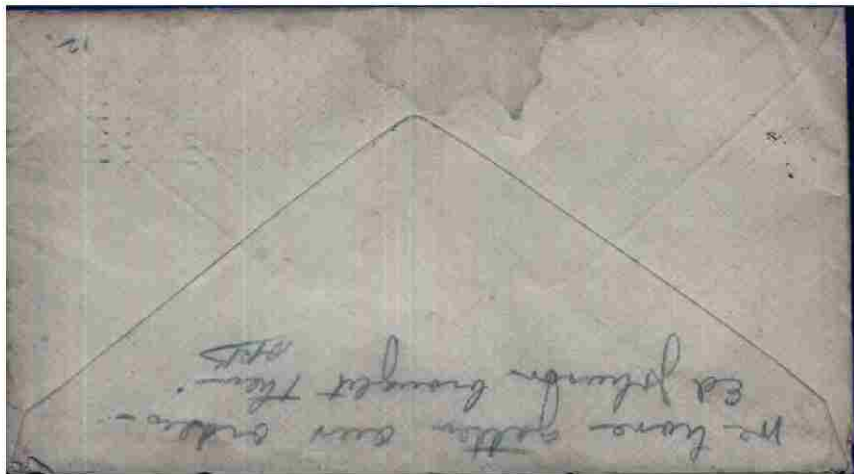 We have gotten our orders –
Ed Johnson brought them –
12